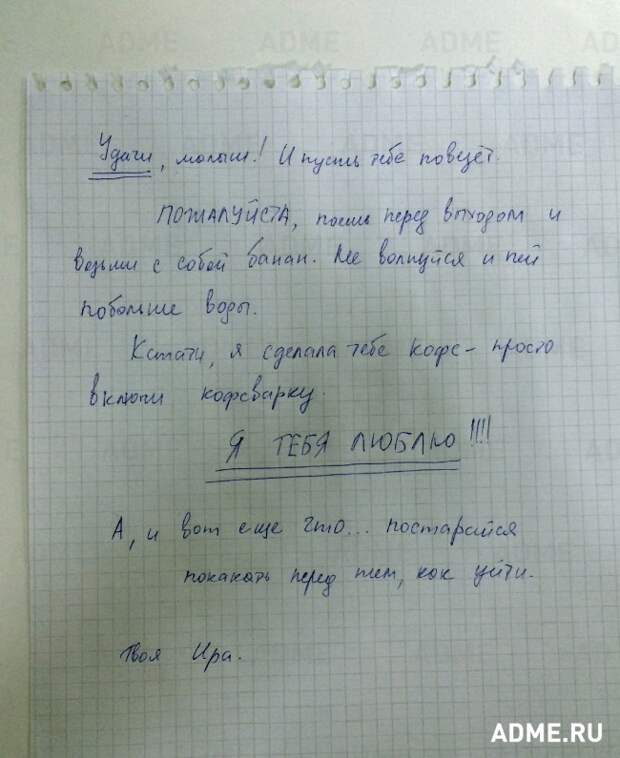 Удачи, малыш! И пусть тебе повезёт.
ПОЖАЛУЙСТА, поешь перед выходом и
возьми с собой банан. Не волнуйся и пей
побольше воды.
Кстати, я сделала тебе кофе – просто
включи кофеварку.
Я ТЕБЯ ЛЮБЛЮ!!!!
А, и вот еще что... постарайся
покакать перед тем, как уйти.
Твоя Ира.
ADME.RU